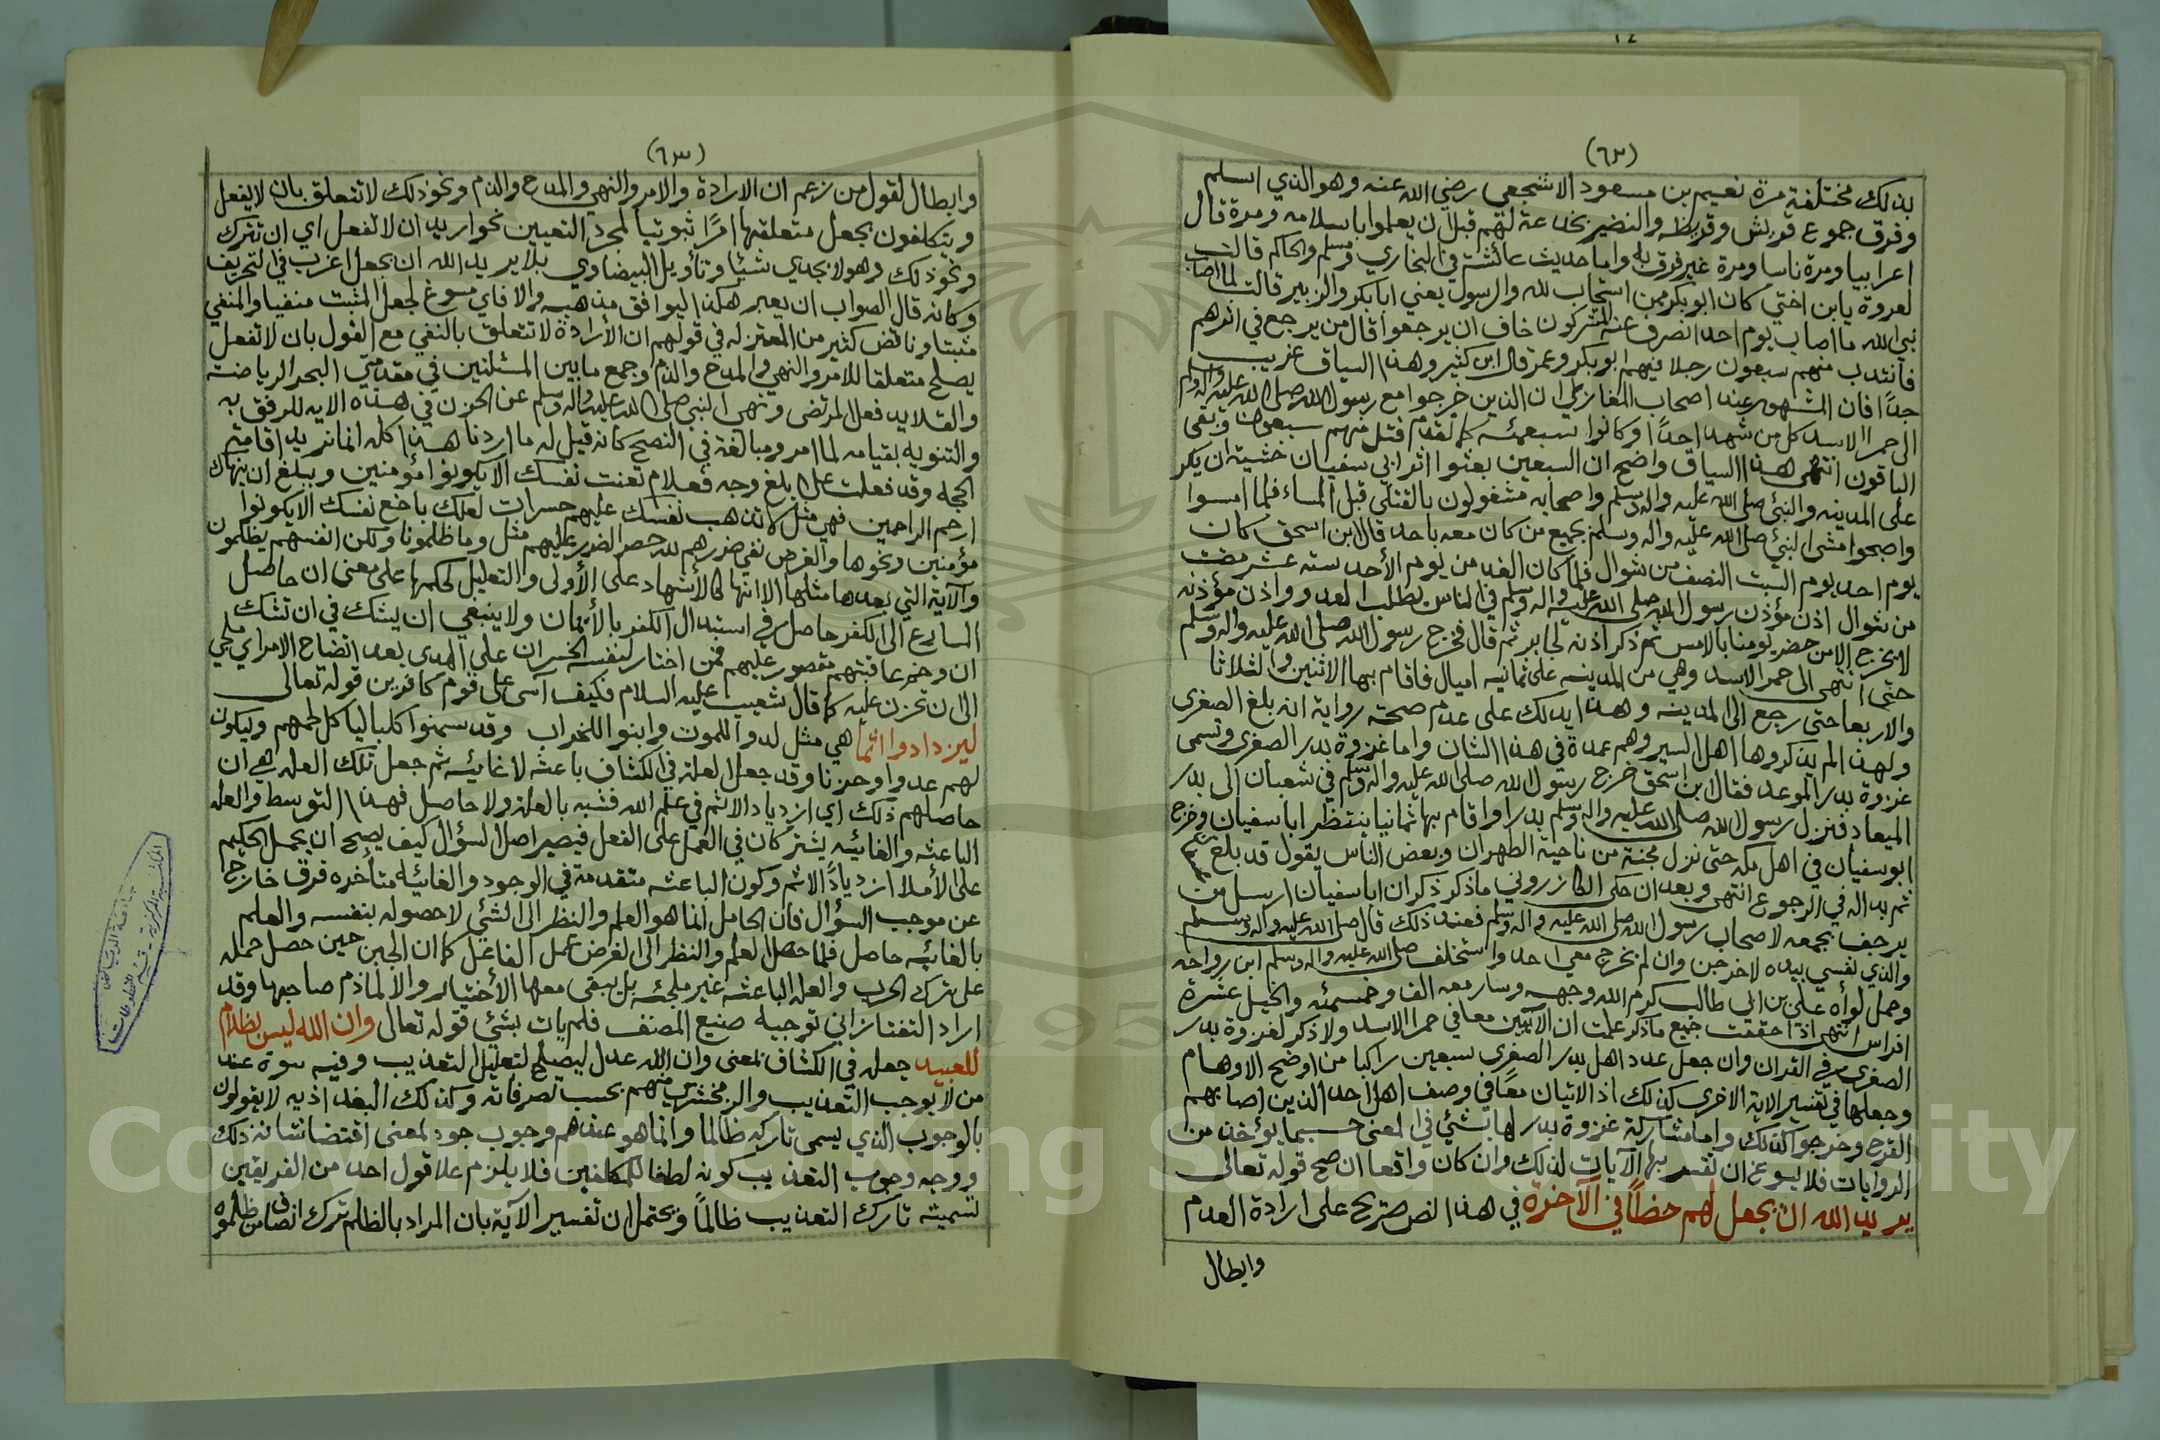 (٦٢)
بذلك مختلفة مرة نعيم بن مسعود الاشجعي رضي الله عنه وهو الذي اسلم
وفرق جموع قريش وقريظه والنضير بخدعة لهم قبل ان يعلموا باسلامه ومرة قال
اعرابيا ومرة ناسا ومرة غير فرق به واما حديث عائشة في البخاري ومسلم والحاكم قالت
لعروة يابن اختي كان ابو بكر ممن استجاب لله والرسول يعني ابا بكر والزبير قالت لما اصاب
نبي الله ما اصاب يوم احد انصرف عنه المشركون خاف ان يرجعوا قال من يرجع في اثرهم
فانتدب منهم سبعون رجلا فيهم ابو بكر وعمر قال ابن كثير وهذا السياق غريب
جدا فان المشهور عند اصحاب المغازي ان الذين خرجوا مع رسول الله صلى الله عليه واله وسلم
الى حمرا الاسد كل من شهد احدا وكانوا سبعمئه كما تقدم قتل منهم سبعون وبقى
الباقون انتهى هذا السياق واضح ان السبعين بعثوا اثر ابي سفيان خشية ان يكر
على المدينه والنبي صلى الله عليه واله وسلم واصحابه مشغولون بالقتلى قبل المساء فلما امسوا
واصبحوا مشى النبي صلى الله عليه واله وسلم بجميع من كان معه باحد قال ابن اسحق كان
يوم احد يوم السبت النصف من شوال فلما كان الغد من يوم الأحد سته عشر مضت
من شوال اذن مؤذن رسول الله صلى الله عليه واله وسلم في الناس بطلب العدو واذن مؤذنه
لا يخرج الا من حضر يومنا بالامس ثم ذكر اذنه لجابر ثم قال فخرج رسول الله صلى الله عليه واله وسلم
حتى انتهى الى حمر الاسد وهي من المدينه على ثمانيه اميال فاقام بها الاثنين والثلاثا
والاربعا حتى رجع الى المدينه وهذا يدلك على عدم صحة رواية انه بلغ الصغرى
ولهذا لم يذكروها اهل السير وهم عمدة في هذا الشان واما غزوة بدر الصغرى وتسمى
غزوة بدر الموعد فقال ابن اسحق خرج رسول الله صلى الله عليه واله وسلم في شعبان الى بدر
الميعاد فنزل رسول الله صلى الله عليه واله وسلم بدرا واقام بها ثمانيا ينتظر ابا سفيان وخرج
ابو سفيان في اهل مكه حتى نزل مجنة من ناحية الظهران وبعض الناس يقول قد بلغ
ثم بدا له في الرجوع انتهى وبعد ان حكى الكازروني ما ذكر ذكر ان ابا سفيان ارسل من
يرجف بجمعه لاصحاب رسول الله صلى الله عليه واله وسلم فعند ذلك قال صلى الله عليه واله وسلم
والذي نفسي بيده لاخرجن وان لم يخرج معي احد واستخلف صلى الله عليه واله وسلم ابن رواحه
وحمل لواه علي بن ابي طالب كرم الله وجهه وسار معه الف وخمسمئه والخيل عشرة
افراس انتهى اذا حققت جميع ما ذكر علمت ان الآيتين معا في حمرا الاسد ولا ذكر لغزوة بدر
الصغرى في القران وان جعل عدد اهل بدر الصغرى سبعين راكبا من اوضح الاوهام
وجعلها في تفسير الاية الاخرى كذلك اذ الايتان معا في وصف اهل احد الذين اصابهم
القرح وخرجوا كذلك واما مشاركة غزوة بدر لها بشئ في المعنى حسبما يؤخذ من
الروايات فلا يسوغ ان تفسر بها الآيات لذلك وان كان واقعا ان صح قوله تعالى
يريد الله الا يجعل لهم حظا في الآخرة في هذا النص صريح على ارادة العدم
وابطال
(٦٣)
وابطال لقول من زعم ان الارادة والامر والنهي والمدح والذم ونحو ذلك لا تتعلق بان لا يفعل
ويتكلفون بجعل متعلقها امرا ثبوتيا لمجرد التعيين نحو اريد ان لا تفعل اي ان تترك
ونحو ذلك وهو لا يجدي شيئا وتأويل البيضاوي بلا يريد الله ان يجعل اغرب في التحريف
وكانه قال الصواب ان يعبر هكذا ليوافق مذهبه والا فاي مسوغ لجعل المثبت منفيا والمنفي
مثبتا وناقض كثير من المعتزله في قولهم ان الأرادة لا تتعلق بالنفي مع القول بان لا تفعل
يصلح متعلقا للامر والنهي والمدح والذم وجمع ما بين المسئلتين في مقدمتي البحر الرياضه
والقلايد فعل المرتضى ونهى النبي صلى الله عليه واله وسلم عن الحزن في هذه الايه للرفق به
والتنويه بقيامه لما امر ومبالغة في النصح كانه قيل له ما اردنا هذا كله انما نريد اقامة
الحجه وقد فعلت على ابلغ وجه فعلام تعنت نفسك الا يكونوا مؤمنين ويبلغ ان ينهاك
ارحم الراحمين فهي مثل لا تذهب نفسك عليهم حسرات لعلك باخع نفسك الا يكونوا
مؤمنين ونحوها والغرض نفي ضررهم لله حصر الضرر عليهم مثل وما ظلمونا ولكن انفسهم يظلمون
والآية التي بعدها مثلها الا انها كالأشهاد على الأولى والتعليل لحكمها على معنى ان حاصل
المسارع الى الكفر حاصل في استبدال الكفر بالأيمان ولا ينبغي ان يشك في ان تشك
ان وخم عاقبتهم مقصور عليهم فمن اختار لنفسه الخسران على الهدى بعد اتضاح الامر اي يلجي
الى ان تحزن عليه كما قال شعيب عليه السلام فكيف آسى على قوم كافرين قوله تعالى
ليزدادوا اثما هي مثل لدوا للموت وابنوا للخراب وقد سمنوا كلبا ليأكل لحمهم وليكون
لهم عدوا وحزنا وقد جعل العلة في الكشاف باعثه لا غائيه ثم جعل تلك العله هي ان
حاصلهم ذلك اي ازدياد الاثم في علم الله فشبه بالعلة ولا حاصل فهذا التوسط والعله
الباعثه والغائيه يشتركان في الحمل على الفعل فيصير اصل السؤال كيف يصح ان يحمل الحكيم
على الأملا ازدياد الاثم وكون الباعثه متقدمة في الوجود والغائيه متأخره فرق خارج
عن موجب السؤال فان الحامل انما هو العلم والنظر الى الشئ لا حصوله بنفسه والعلم
بالغائيه حاصل فلما حصل العلم والنظر الى الغرض عمل الفاعل كما ان الجبن حين حصل حمله
على ترك الحرب والعله الباعثه غير ملجئه بل يبقى معها الأختيار والا لما ذم صاحبها وقد
اراد التفتازاني توجيه صنيع المصنف فلم يات بشئ قوله تعالى وان الله ليس بظلام
للعبيد جعله في الكشاف لمعنى وان الله عدل ليصلح لتعليل التعذيب وفيه سوة عند
من لا يوجب التعذيب والزمخشري منهم بحسب تصرفاته وكذلك البغداذيه لا يقولون
بالوجوب الذي يسمى تاركه ظالما وانما هو عندهم وجوب جود لمعنى اقتضا شانه ذلك
ووجه وجوب التعذيب كونه لطفا للمكلفين فلا يلزم على قول احد من الفريقين
تسمية تارك التعذيب ظالما ويحتمل ان تفسير الآية بان المراد بالظلم ترك انصاف من ظلموه
جامعة الرياض
المكتبة المركزية - قسم المخطوطات
Copyright © King Saud University
1957